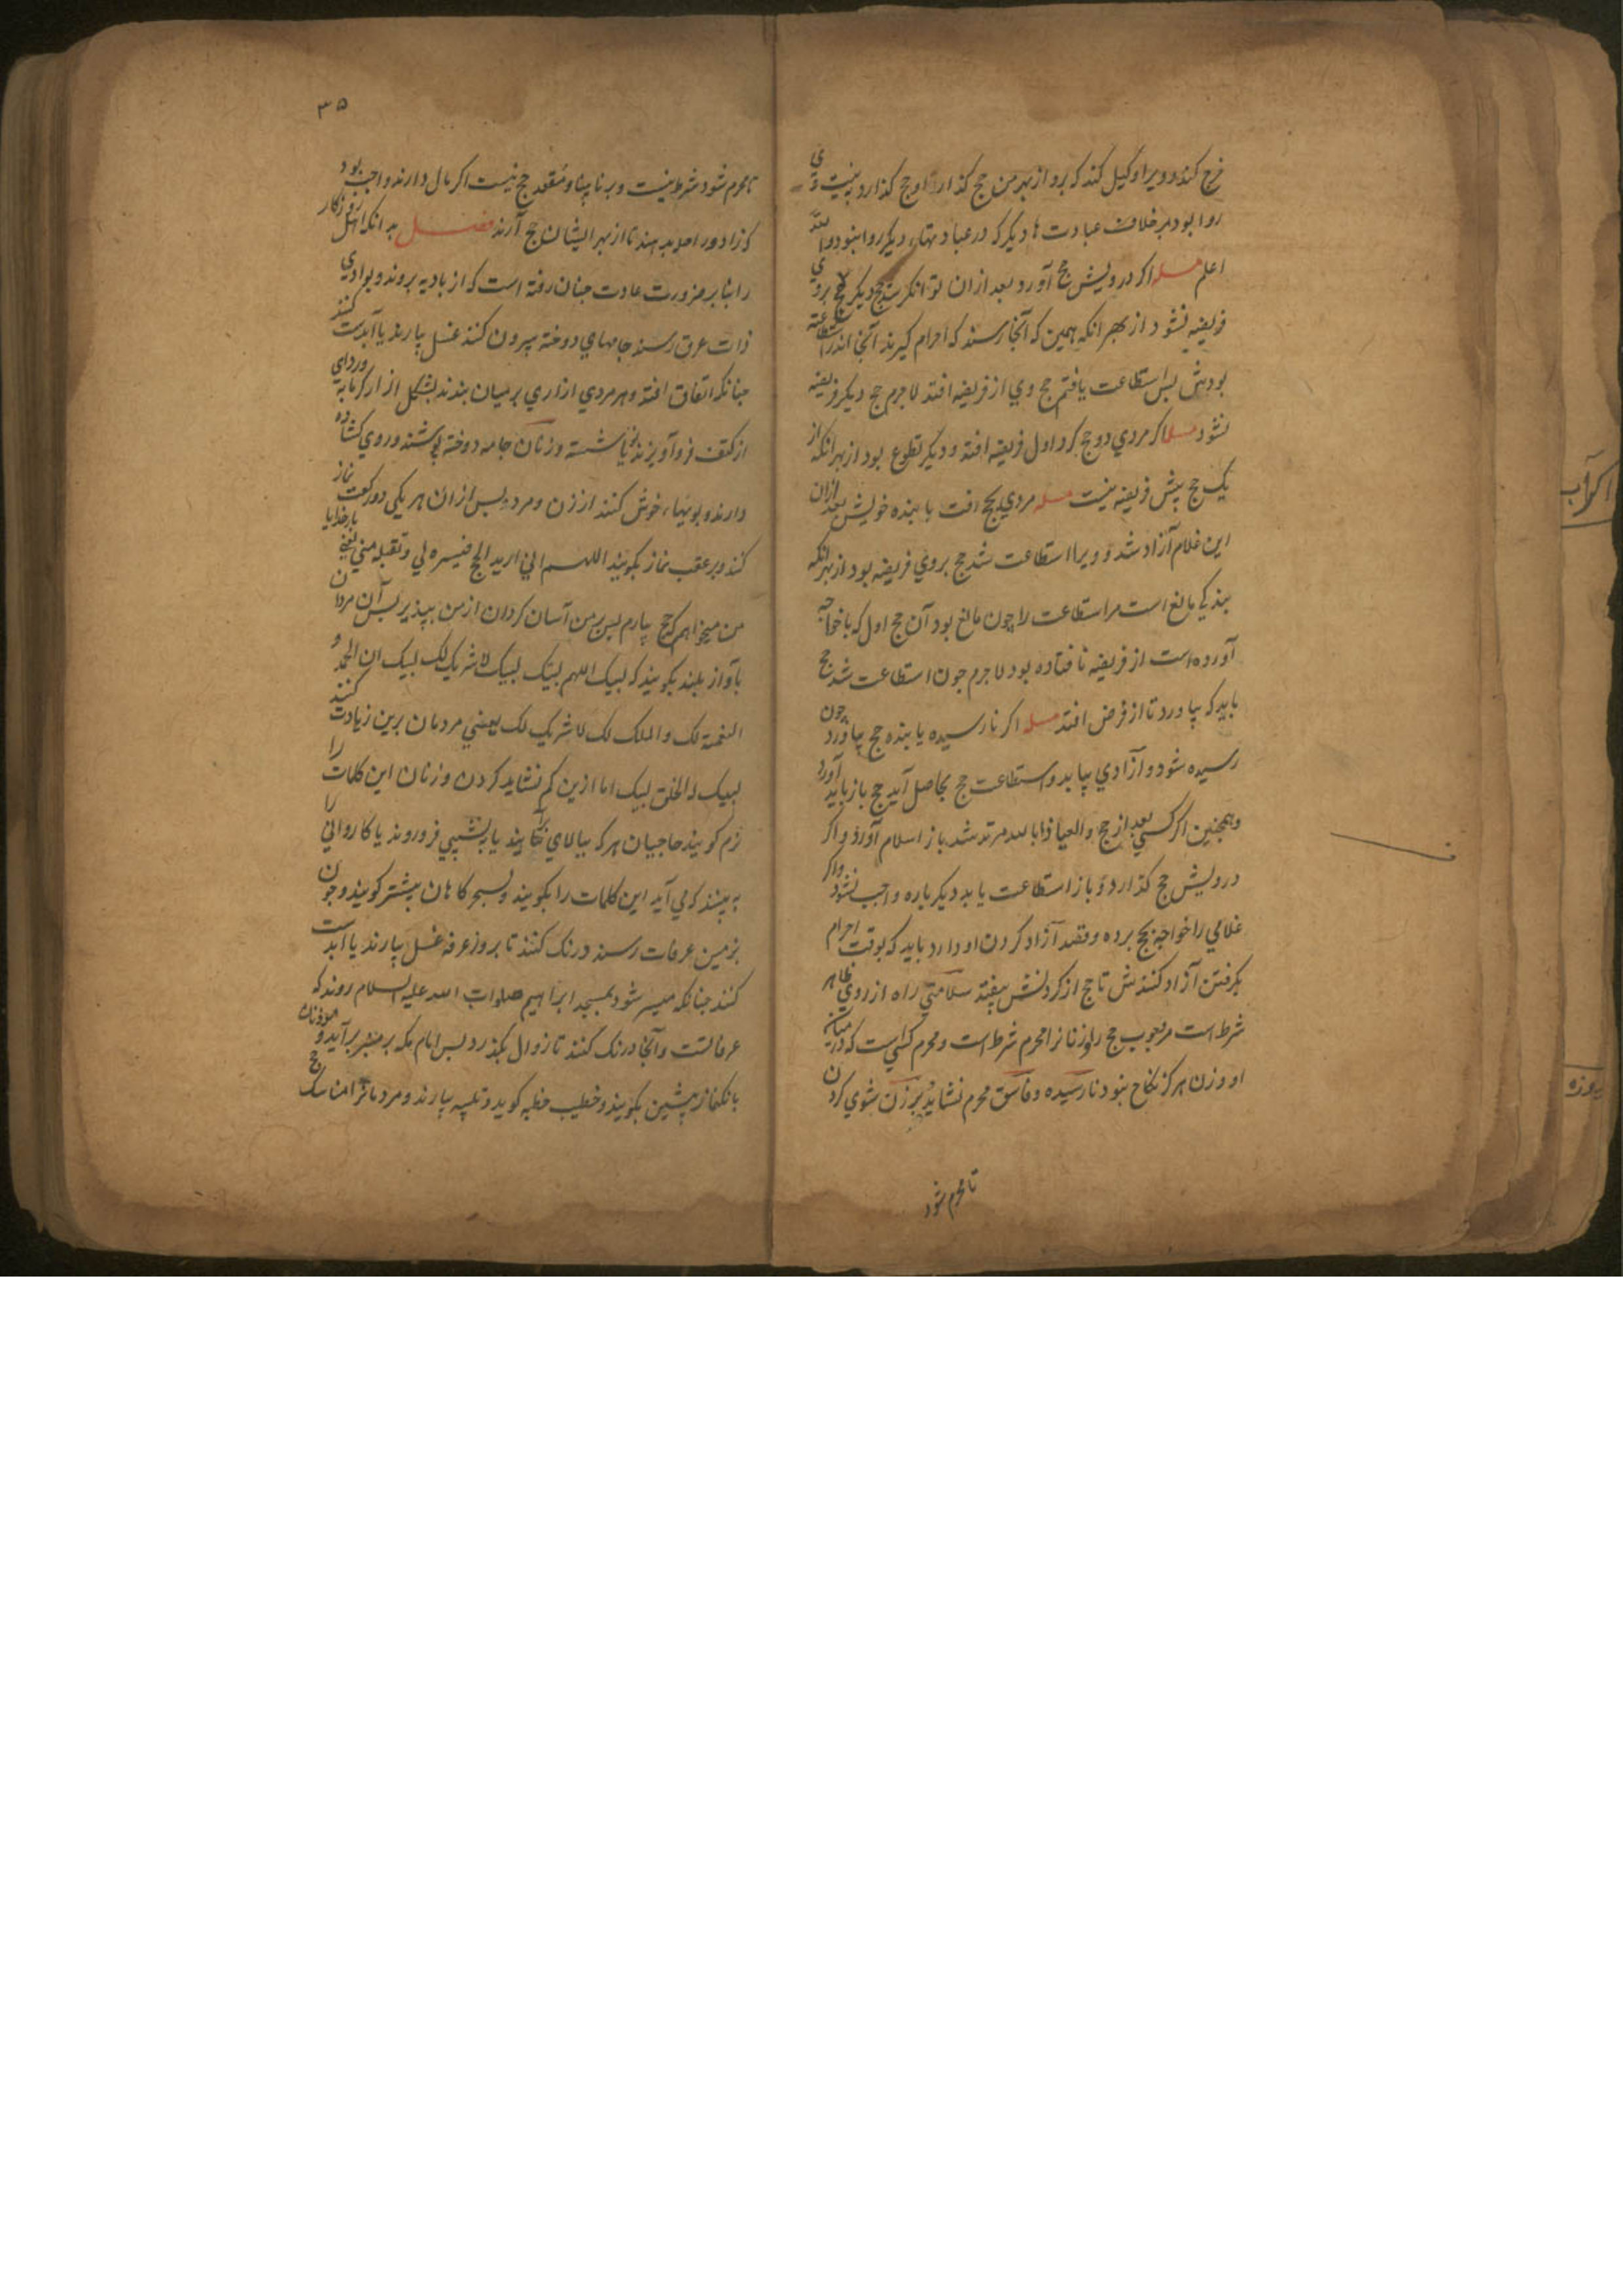 خرج کند و ویرا وکیل کند که برو از بهر من حج کذار تا او حج کذارد بنیت وی
روا بود بر خلاف عبادت ها دیکر که در عبادتهاء دیکر روا نبود والله
اعلم مسله اکر درویش حج آورد بعد ازان توانکر شد حج دیکر بروی
فریضه نشود از بهر انکه همین که آنجا رسند که احرام کیرند آنجا اندر استطاعته
بودش بس استطاعت یافتم حج وی از فریضه افتد لاجرم حج دیکر فریضه
نشود مسله اکر مردی دو حج کرد اول فریضه افتد و دیکر تطوع بود از بهر انکه از
یک حج بیش فریضه نیست مسله مردی بحج رفت با بنده خویش بعد ازان
این غلام آزاد شد و ویرا استطاعت شد حج بروی فریضه بود از بهر انکه
بندکی مانع است مر استطاعت را چون مانع بود آن حج اول که با خواجه
آورده است از فریضه نافتاده بود لاجرم جون استطاعت شد حج
باید که بیاورد تا از فرض افتد مسله اکر نارسیده یا بنده حج بیاورد چون
رسیده شود و آزادی بیابد و استطاعت حج بحاصل آید حج باز باید آورد
و همچنین اکر کسی بعد از حج والعیاذ بالله مرتد شد باز اسلام آورد و اکر
درویش حج کذارد و باز استطاعت یابد دیکر باره واجب نشود و اکر
غلامی را خواجه بحج برده و قصد آزاد کردن او دارد باید که بوقت احرام
بکرفتن آزاد کنندش تا حج از کردنش بیفتد سلامتی راه از روی ظاهر
شرط است مر وجوب حج را و زنانرا محرم شرط است و محرم کسی است که در میان
او و زن هرکز نکاح نبود نارسیده و فاسق محرم نشاید و بر زن شوی کردن
تا محرم شود
۳۵
تا محرم شود شرط نیست و بر نابینا و مقعد حج نیست اکر مال دارند واجب بود
که زاد و راحله بدهند تا از بهر ایشان حج آرند فصل بدانکه اهل روزکار
را بنا بر ضرورت عادت جنان رفته است که از بادیه بروند و بوادی
ذات عرق رسند جامهای دوخته بیرون کنند غسل بیارند یا آبدست کنند
جنانکه اتفاق افتد و هر مردی ازاری بر میان بندند بشکل ازار کرمابه و ردای
از کتف فرو آویزند یا شسته و زنان جامه دوخته پوشند و روی کشاده
دارند و بویهاء خوش کنند از زن و مرد بس ازان هر یکی دو رکعت نماز
کنند و بر عقب نماز بکویند اللهم انی ارید الحج فیسره لی و تقبله منی یعنی بار خدایا
من میخواهم که حج بیارم بس بر من آسان کردان از من بپذیر بس آن مردان
بآواز بلند بکویند که لبیک اللهم لبیک لبیک لا شریک لک لبیک ان الحمد و
النعمة لک و الملک لک لا شریک لک بعضی مردمان برین زیادت کنند
لبیک اله الخلق لبیک اما ازین کم نشاید کردن و زنان این کلمات را
نرم کویند حاجیان هر که ببالای برآیند یا بنشیبی فرو روند یا کاروانی را
به بینند که می آید این کلمات را بکویند و بسحر کاهان بیشتر کویند و جون
بزمین عرفات رسند درنک کنند تا بروز عرفه غسل بیارند یا آبدست
کنند جنانکه میسر شود بمسجد ابراهیم صلوات الله علیه السلام روند که
عرفاتست و آنجا درنک کنند تا زوال بکذرد بس امام مکه بر منبر برآید و موذنان
بانک نماز پیشین بکویند و خطیب خطبه کوید و تلبیه بیارند و مردمانرا مناسک حج